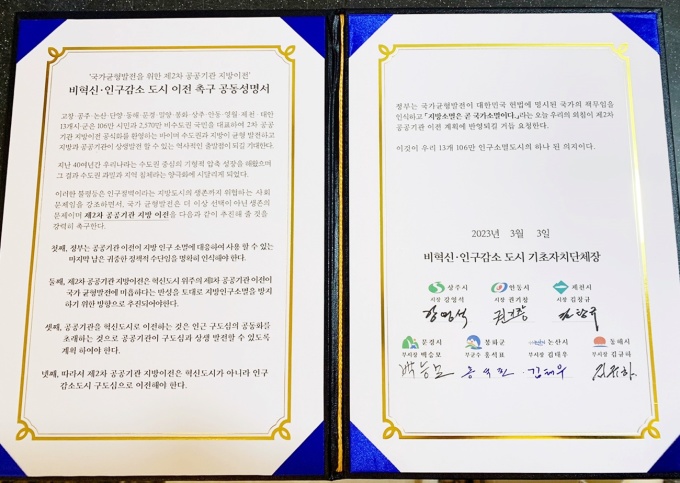 '국가균형발전을 위한 제2차 공공기관 지방이전'
비혁신·인구감소 도시 이전 촉구 공동성명서
고창·공주·논산·단양·동해·문경·밀양·봉화·상주·안동·영월·제천·태안
13개시·군은 106만 시민과 2,570만 비수도권 국민을 대표하여 2차 공공
기관 지방이전 공식화를 환영하는 바이며 수도권과 지방이 균형 발전하고
지방과 공공기관이 상생발전 할 수 있는 역사적인 출발점이 되길 기대한다.
지난 40여년간 우리나라는 수도권 중심의 기형적 압축 성장을 해왔으며
그 결과 수도권 과밀과 지역 침체라는 양극화에 시달리게 되었다.
이러한 불평등은 인구절벽이라는 지방도시의 생존까지 위협하는 사회
문제임을 강조하면서, 국가 균형발전은 더 이상 선택이 아닌 생존의
문제이며 제2차 공공기관 지방 이전을 다음과 같이 추진해 줄 것을
강력히 촉구한다.
첫째, 정부는 공공기관 이전이 지방 인구 소멸에 대응하여 사용 할 수 있는
마지막 남은 귀중한 정책적 수단임을 명확히 인식해야 한다.
둘째, 제2차 공공기관 지방이전은 혁신도시 위주의 제1차 공공기관 이전이
국가 균형발전에 미흡하다는 반성을 토대로 지방인구소멸을 방지
하기 위한 방향으로 추진되어야한다.
셋째, 공공기관을 혁신도시로 이전하는 것은 인근 구도심의 공동화를
초래하는 것으로 공공기관이 구도심과 상생 발전할 수 있도록
계획 하여야 한다.
넷째, 따라서 제2차 공공기관 지방이전은 혁신도시가 아니라 인구
감소도시 구도심으로 이전해야 한다.
정부는 국가균형발전이 대한민국 헌법에 명시된 국가의 책무임을
인식하고 「지방소멸은 곧 국가소멸이다.」라는 오늘 우리의 외침이 제2차
공공기관 이전 계획에 반영되길 거듭 요청한다.
이것이 우리 13개 106만 인구소멸도시의 하나 된 의지이다.
2023년 3월 3일
비혁신·인구감소 도시 기초자치단체장
상주시 안동시 제천시
시장 강영석 시장 권기창 시장 김창규
강영석 권기창 김창규
문경시 봉화군 논산시 동해시
부시장 박승모 부군수 홍석표 부시장 김태우 부시장 김규하
박승모 홍석표 김태우 김규하